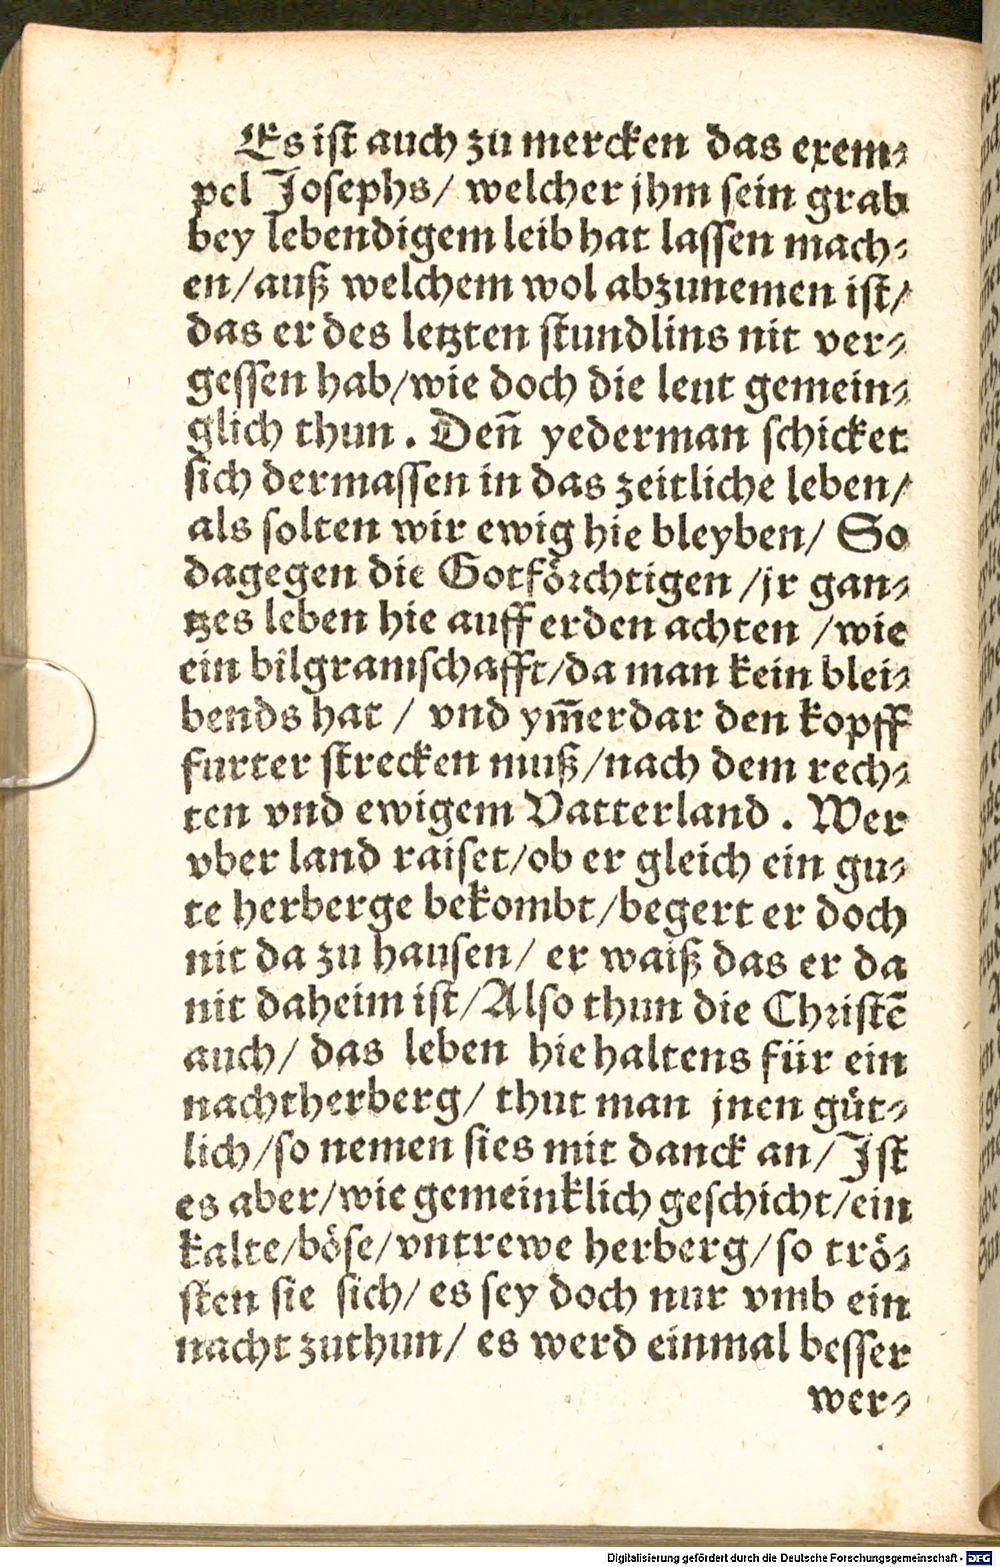 Es ist auch zu mercken das exem⸗
pel Josephs/ welcher jhm sein grab
bey lebendigem leib hat lassen mach⸗
en/auß welchem wol abzunemen ist/
das er des letzten stundlins nit ver⸗
gessen hab/wie doch die leut gemein⸗
glich thun. Deñ yederman schicket
sich dermassen in das zeitliche leben/
als solten wir ewig hie bleyben/ So
dagegen die Gotförchtigen /jr gan⸗
tzes leben hie auff erden achten /wie
ein bilgramschafft/da man kein blei⸗
bends hat / vnd ym̃erdar den kopff
furter strecken muß/nach dem rech⸗
ten vnd ewigem Vatterland. Wer
vber land raiset/ob er gleich ein gu⸗
te herberge bekombt/begert er doch
nit da zu hausen/ er waiß das er da
nit daheim ist/Also thun die Christẽ
auch/ das leben hie haltens für ein
nachtherberg/ thut man jnen güt⸗
lich/so nemen sies mit danck an/Ist
es aber/wie gemeinklich geschicht/ein
kalte/böse/vntrewe herberg/so trö⸗
sten sie sich/ es sey doch nur vmb ein
nacht zuthun/ es werd einmal besser
wer⸗
Digitalisierung gefördert durch die Deutsche Forschungsgemeinschaft - DFG